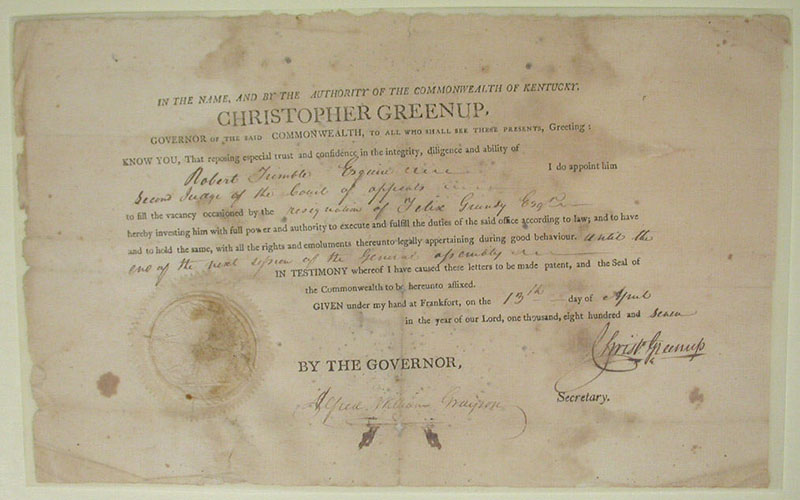 IN THE NAME, AND BY THE AUTHORITY OF THE COMMONWEALTH OF KENTUCKY,
CHRISTOPHER GREENUP,
GOVERNOR OF THE SAID COMMONWEALTH, TO ALL WHO SHALL SEE THESE PRESENTS, Greeting:
KNOW YOU, That reposing especial trust and confidence in the integrity, diligence and ability of
Robert Trimble Esquire I do appoint him
Second Judge of the Court of appeals
to fill the vacancy occasioned by the resignation of Felix Grundy Esqr
hereby investing him with full power and authority to execute and fulfill the duties of the said office according to law; and to have
and to hold the same, with all the rights and emoluments thereunto legally appertaining during good behaviour. until the
end of the next session of the General assembly
IN TESTIMONY whereof I have caused these letters to be made patent, and the Seal of
the Commonwealth to be hereunto affixed.
GIVEN under my hand at Frankfort, on the 13th day of April
in the year of our Lord, one thousand, eight hundred and seven
Christ Greenup
BY THE GOVERNOR,
Alfred William Grayson
Secretary.